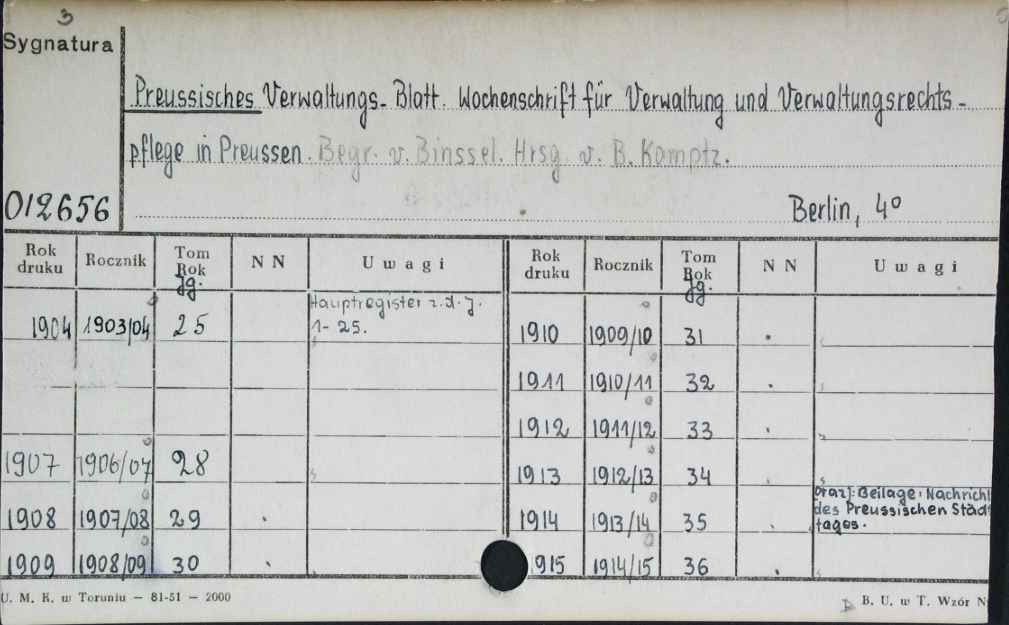 3
Sygnatura
Preussisches Verwaltungs-Blatt. Wochenschrift für Verwaltung und Verwaltungsrechts-
pflege in Preussen. Begr. v. Binssel. Hrsg. v. B. Kamptz.
012656
Berlin, 4°
Rok druku Rocznik Tom Rok Jg. NN Uwagi Rok druku Rocznik Tom Rok Jg. NN Uwagi
Hauptregister z.d.J.
1904 1903/04 25 1-25. 1910 1909/10 31
1911 1910/11 32
1912 1911/12 33
1907 1906/07 28 1913 1912/13 34
oraz: Beilage: Nachricht
des Preussischen Städ
1908 1907/08 29 1914 1913/14 35 tages.
1909 1908/09 30 1915 1914/15 36
U. M. K. w Toruniu — 81-51 — 2000
B. U. w T. Wzór N